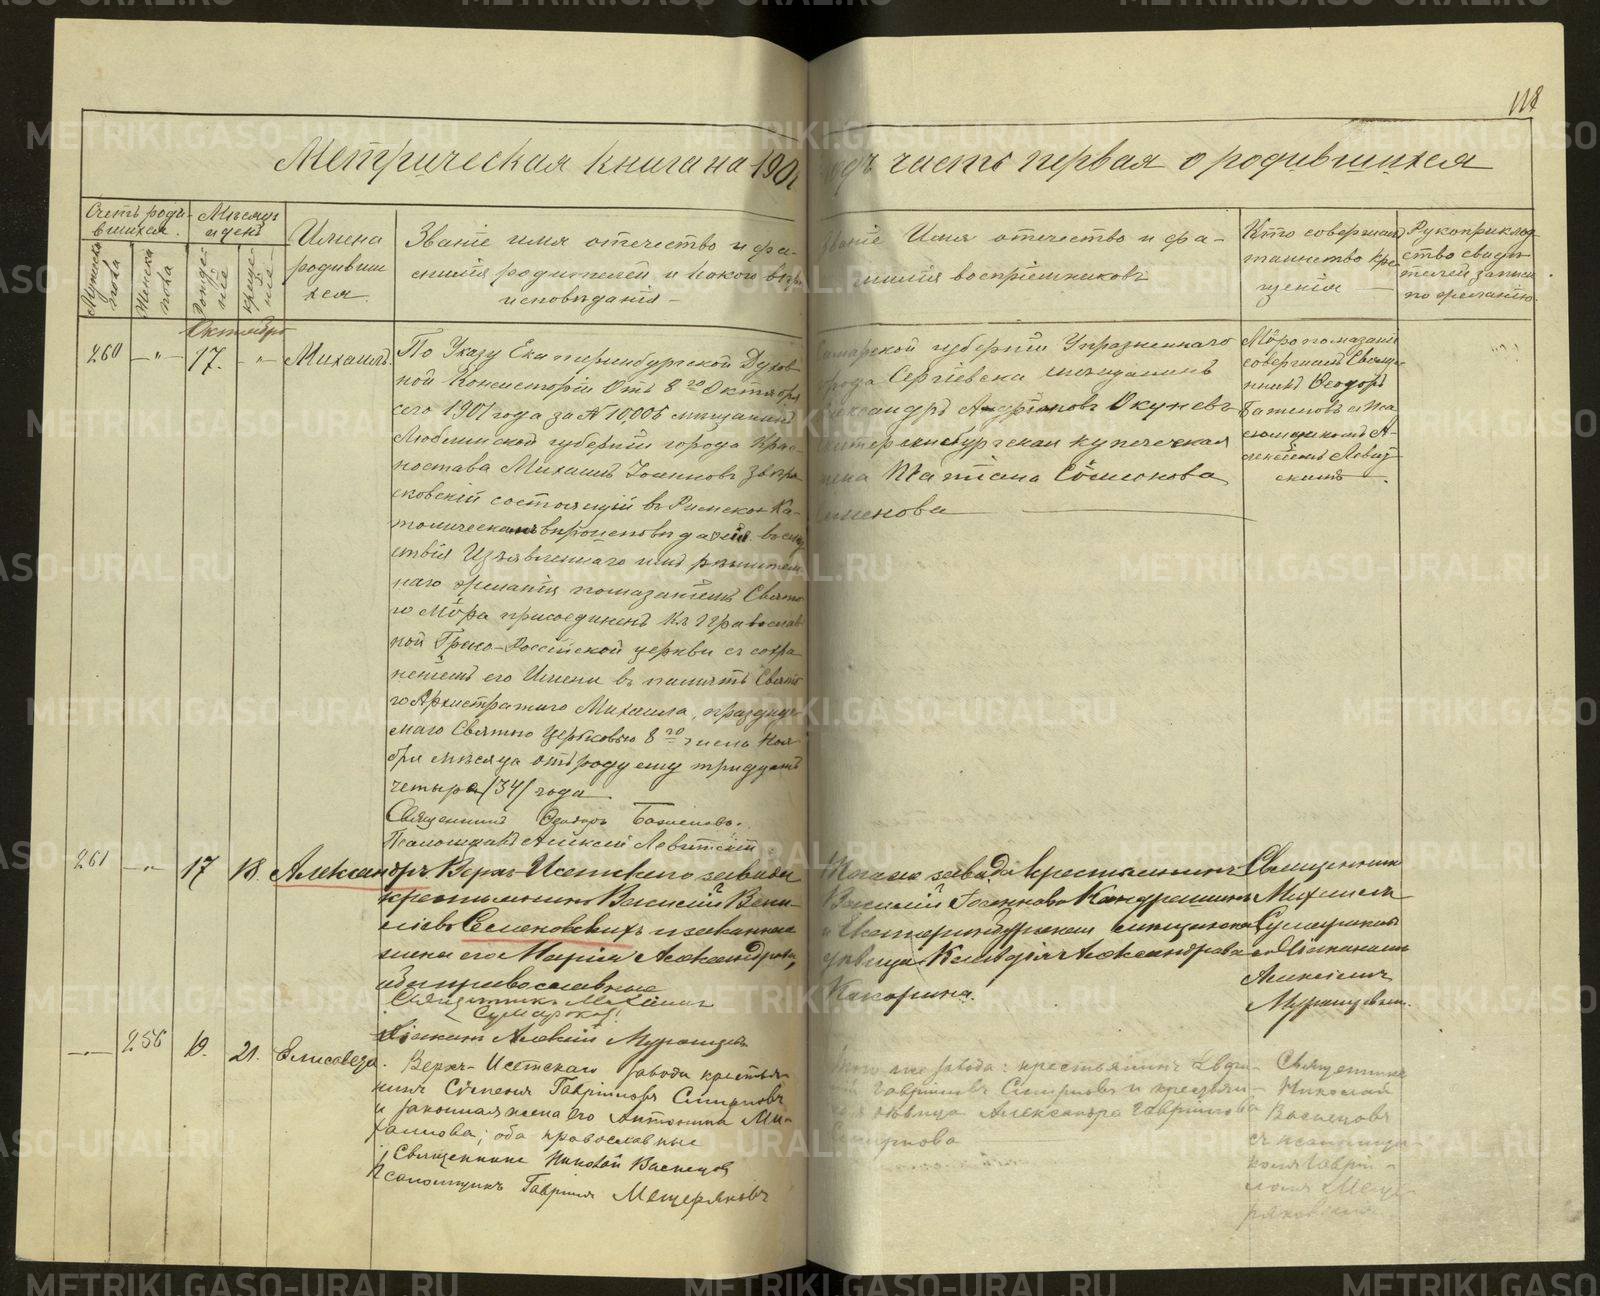 118
Метрическая книга на 190 годъ часть первая о родившихся
Счетъ роди-
вшихся.
Мѣсяцъ
и день
Мужеска
пола
Женска
пола
рожде-
нія
креще-
нія
Имена
родивши
хся.
Званіе имя отчество и фа-
милія родителей, и какого вѣро
исповѣданія
Званіе Имя отчество и фа-
милія воспріемниковъ
Кто совершалъ
таинство кре
щенія
Рукоприклад
ство свидѣ
телей записи
по желанію
Октябрь
260
17.
Михаилъ.
По Указу Екатеринбургской Духов
ной Консисторіи отъ 8го Октября
сего 1901 года за № 10,006 мѣщанинъ
Люблинской губерніи города Крас-
ностава Михаилъ Іоанновъ
состоящій въ Римско-Ка-
толическомъ вѣроисповѣданіи вслѣд
ствіе Изъявленнаго имъ рѣшитель
наго желанія помазаніемъ Свята
го Мѵра присоединенъ Къ Православ
ной Греко-Россійской церкви съ сохра
неніемъ его Имени въ память Свята
го Архистратига Михаила, празднуе
маго Святою Церковью 8го числа Ноя
бря мѣсяца отъ роду ему тридцать
четыре /34/ года
Священникъ Ѳеодоръ
Псаломщикъ Алексій Левитскій
Самарской губерніи Упраздненнаго
города Сергіевска мѣщанинъ
Александръ Андріановъ Окуневъ
Екатеринбургская купеческая
жена Татіана Сѵмеонова
Семенова
Мѵропомазаніе
совершилъ Свяще
нникъ Ѳеодоръ
съ Пса
ломщикомъ А-
лексіемъ Левит
скимъ
261
17
18.
Александръ
Верхъ-Исетскаго завода
крестьянинъ Василій Васи-
ліевъ Селяновскихъ и законная
жена его Марія Александрова,
оба православные
Священникъ Михаилъ
Сумароковъ
Діаконъ Алексій Мурашевъ
Того же завода крестьянинъ
Василій Іоанновъ Кондрашинъ
и Екатеринбургская мѣщанская
дѣвица Клавдія Александрова
Какорина.
Священникъ
Михаилъ
Сумароковъ
съ Діакономъ
Алексіемъ
Мурашевымъ.
256
19.
21.
Елисавета.
Верхъ-Исетскаго завода крестья-
нинъ Стефанъ Гавріиловъ Смирновъ
и законная жена его Антонина Ми-
хаилова; оба православные
Священникъ Николай Васнецовъ
Псаломщикъ Гавріилъ Мещеряковъ
Того же завода: крестьянинъ
Гавріиловъ Смирновъ и крестьян-
ская дѣвица Александра Гавріилова
Смирнова
Священникъ
Николай
Васнецовъ
съ псаломщи-
комъ Гаврі-
иломъ Меще-
ряковымъ.
METRIKI.GASO-URAL.RU